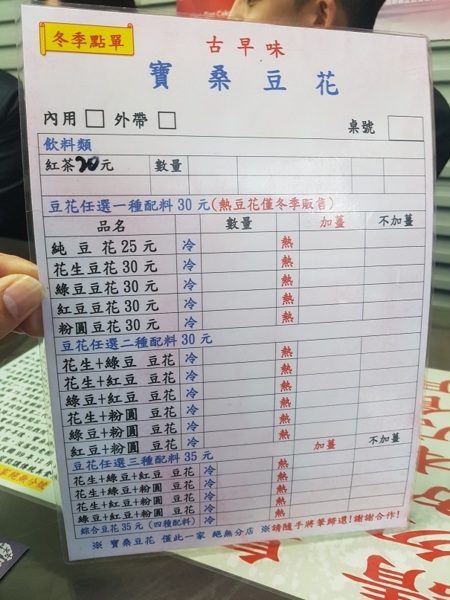 冬季點單
古早味
寶桑豆花
內用 外帶 桌號
飲料類
紅茶20元 數量
豆花任選一種配料 30 元(熱豆花僅冬季販售)
品名 數量 加薑 不加薑
純豆花 25 元 冷 熱
花生豆花 30 元 冷 熱
綠豆豆花 30 元 冷 熱
紅豆豆花 30 元 冷 熱
粉圓豆花 30 元 冷 熱
豆花任選二種配料 30 元
花生+綠豆 豆花 冷 熱
花生+紅豆 豆花 冷 熱
綠豆+紅豆 豆花 冷 熱
花生+粉圓 豆花 冷 熱
綠豆+粉圓 豆花 冷 熱
紅豆+粉圓 豆花 冷 熱 加薑 不加薑
豆花任選三種配料 35 元
花生+綠豆+紅豆 豆花 冷 熱
花生+綠豆+粉圓 豆花 冷 熱
花生+紅豆+粉圓 豆花 冷 熱
綠豆+紅豆+粉圓 豆花 冷 熱
綜合豆花 35 元 (四種配料) 冷 熱
※ 寶桑豆花 僅此一家 絕無分店 ※請隨手將筆歸還!謝謝合作!